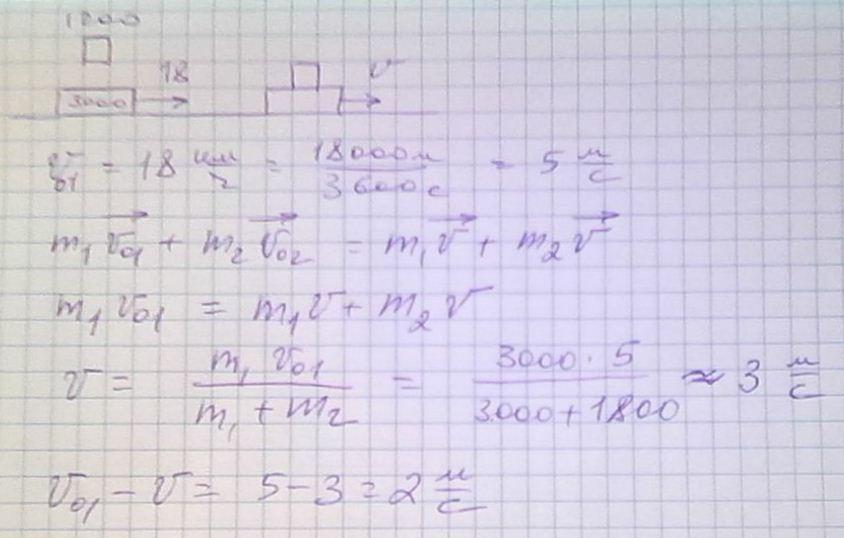 1800
18 v
3000
v₀₁ = 18 км/ч = 18000м/3600с = 5 м/с
m₁v₀₁ + m₂v₀₂ = m₁v + m₂v
m₁v₀₁ = m₁v + m₂v
v = m₁v₀₁/(m₁ + m₂) = 3000·5/(3000+1800) ≈ 3 м/с
v₀₁ – v = 5–3=2 м/с